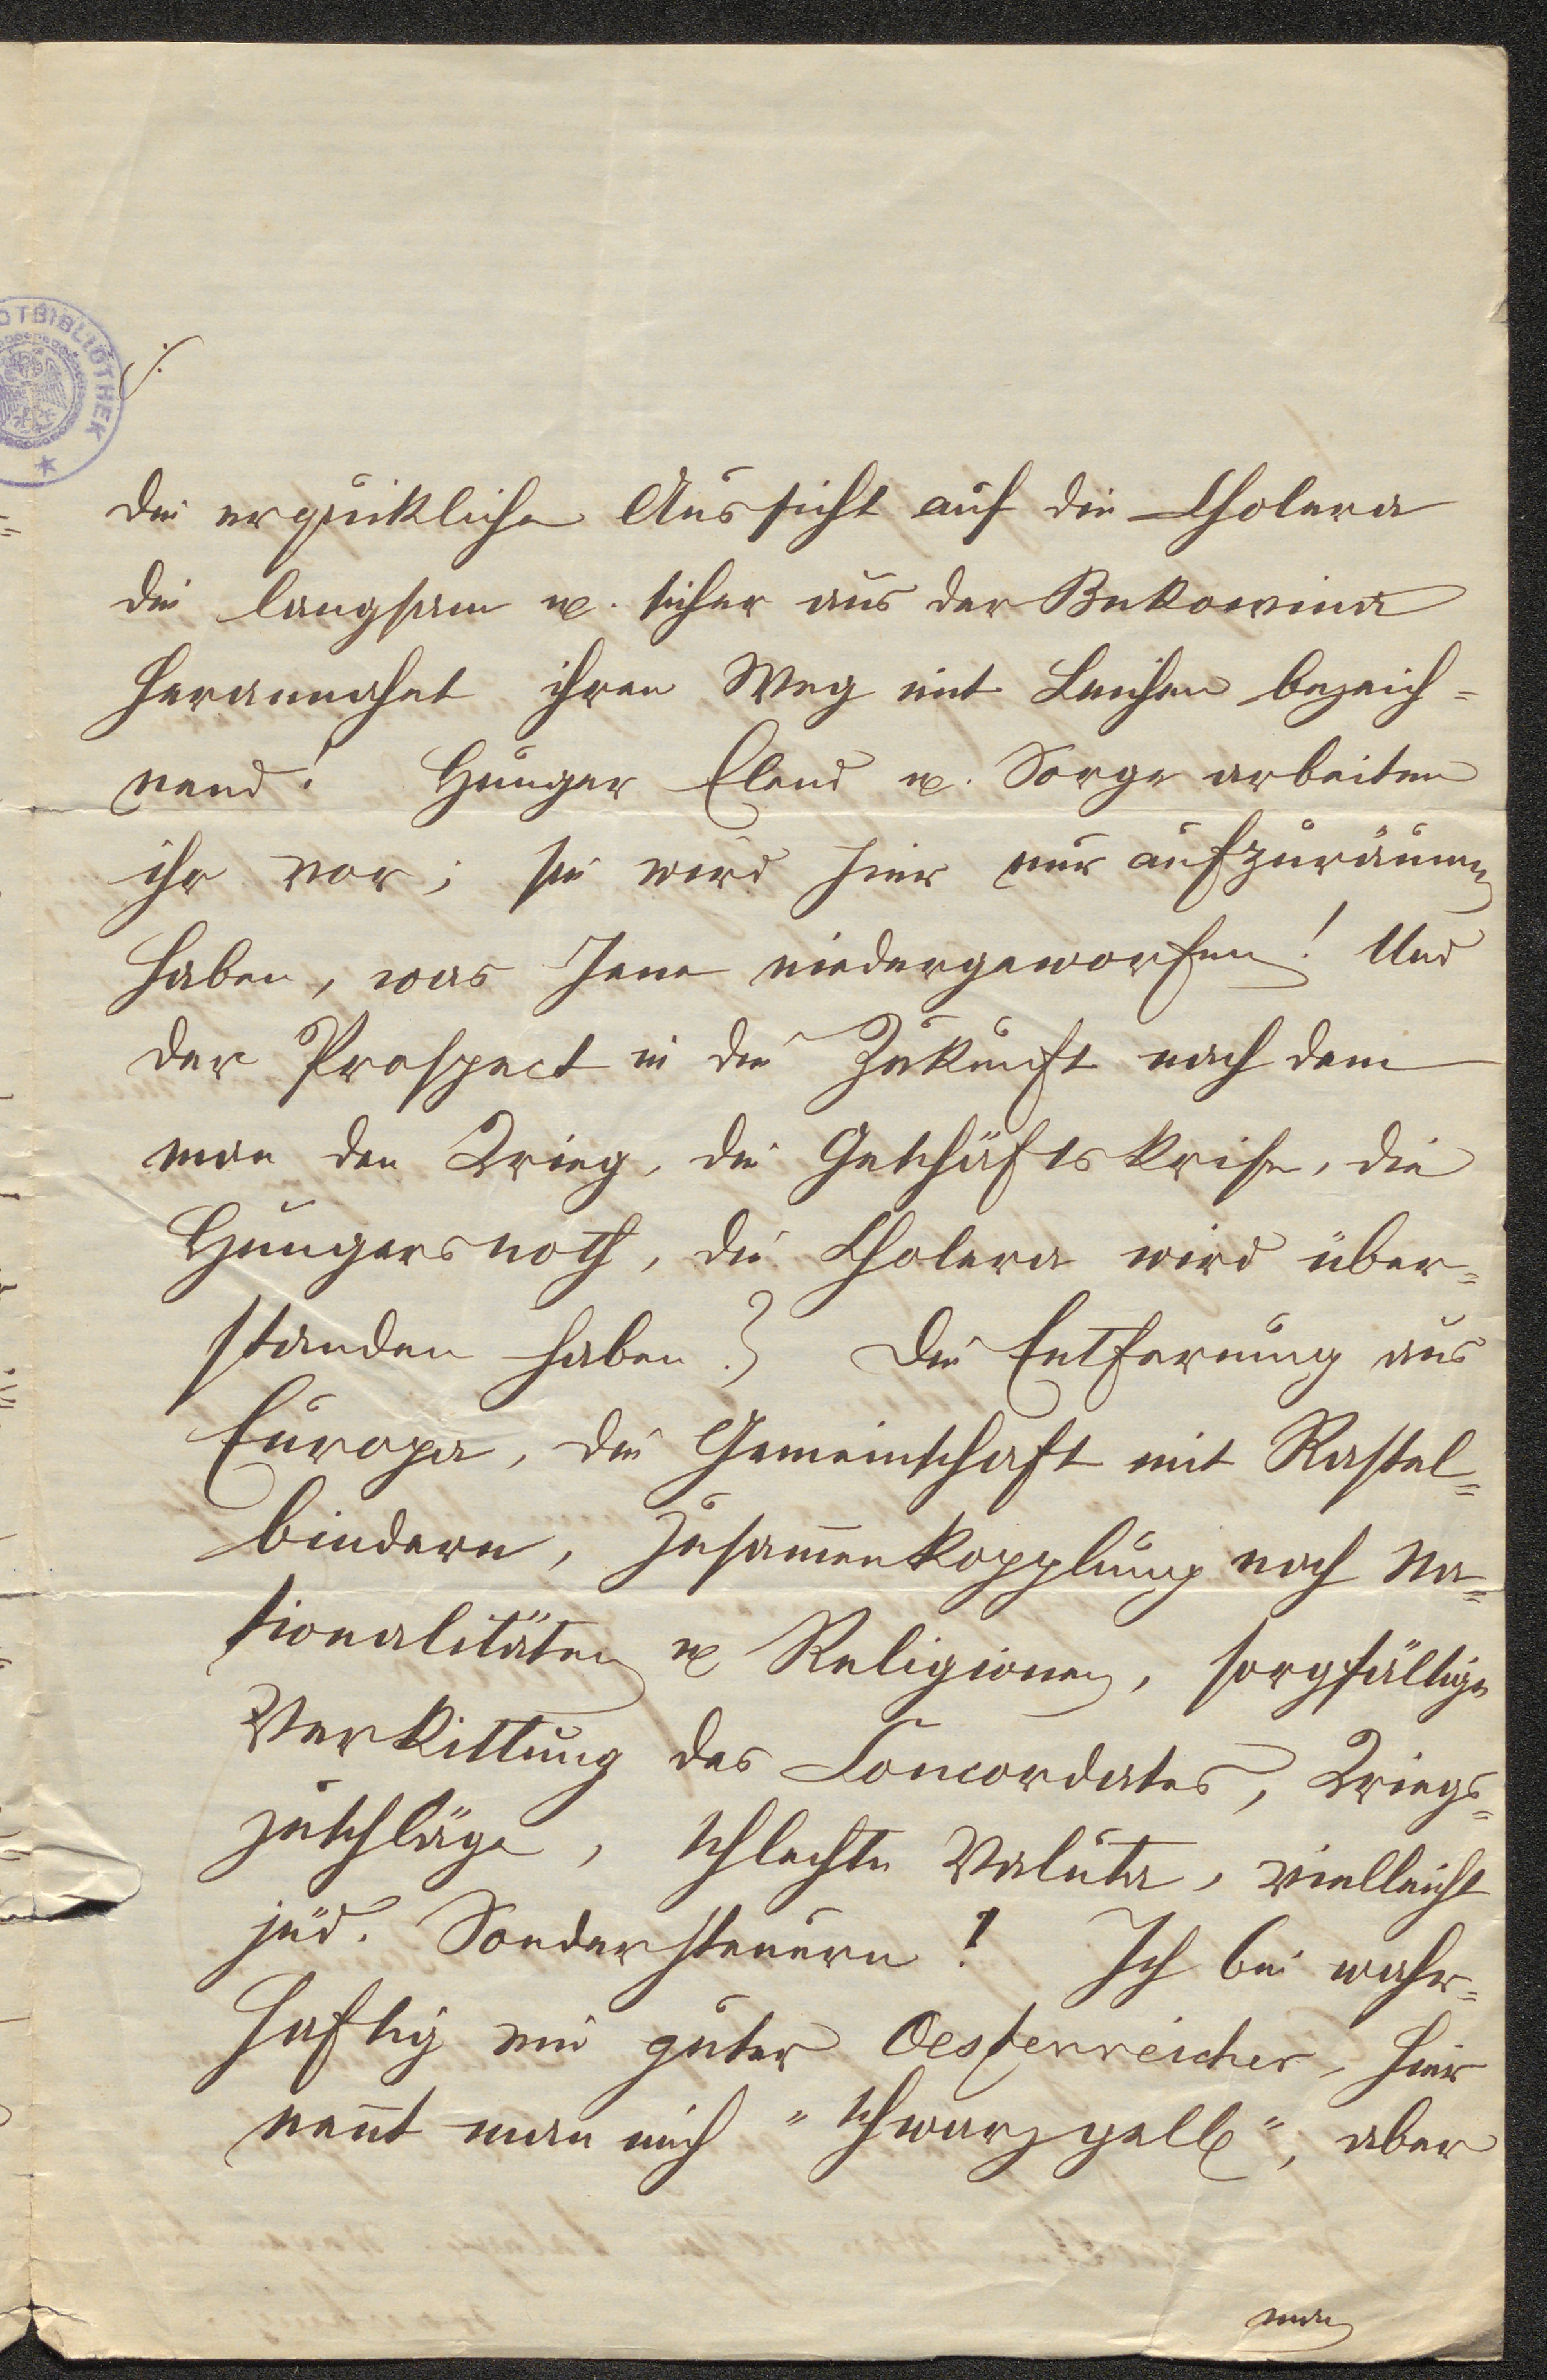 DTBIBLIOTHEK
./.
die erquickliche Aussicht auf die Cholera
die langsam u. sicher aus der Bukowina
herannahet ihren Weg mit Leichen bezeich=
nend! Hunger Elend u. Sorge arbeiten
ihr vor; sie wird hier nur aufzuräumen
haben, was Jene niedergeworfen! Und
der Prospect in die Zukunft nach dem
man den Krieg, die Geschäftskrise, die
Hungersnoth, die Cholera wird über=
standen haben? Die Entfernung aus
Europa, die Gemeinschaft mit Rastel=
bindern, Zusam̄enkopplung nach Na=
tionalitäten u Religionen, sorgfältige
Verkittung des Concordates, Kriegs=
zuschläge, schlechte Valuta, vielleicht
jüd. Sondersteuern! Ich bin wahr=
haftig ein guter Oesterreicher, hier
nen̄t man mich "schwarzgelb", aber
man